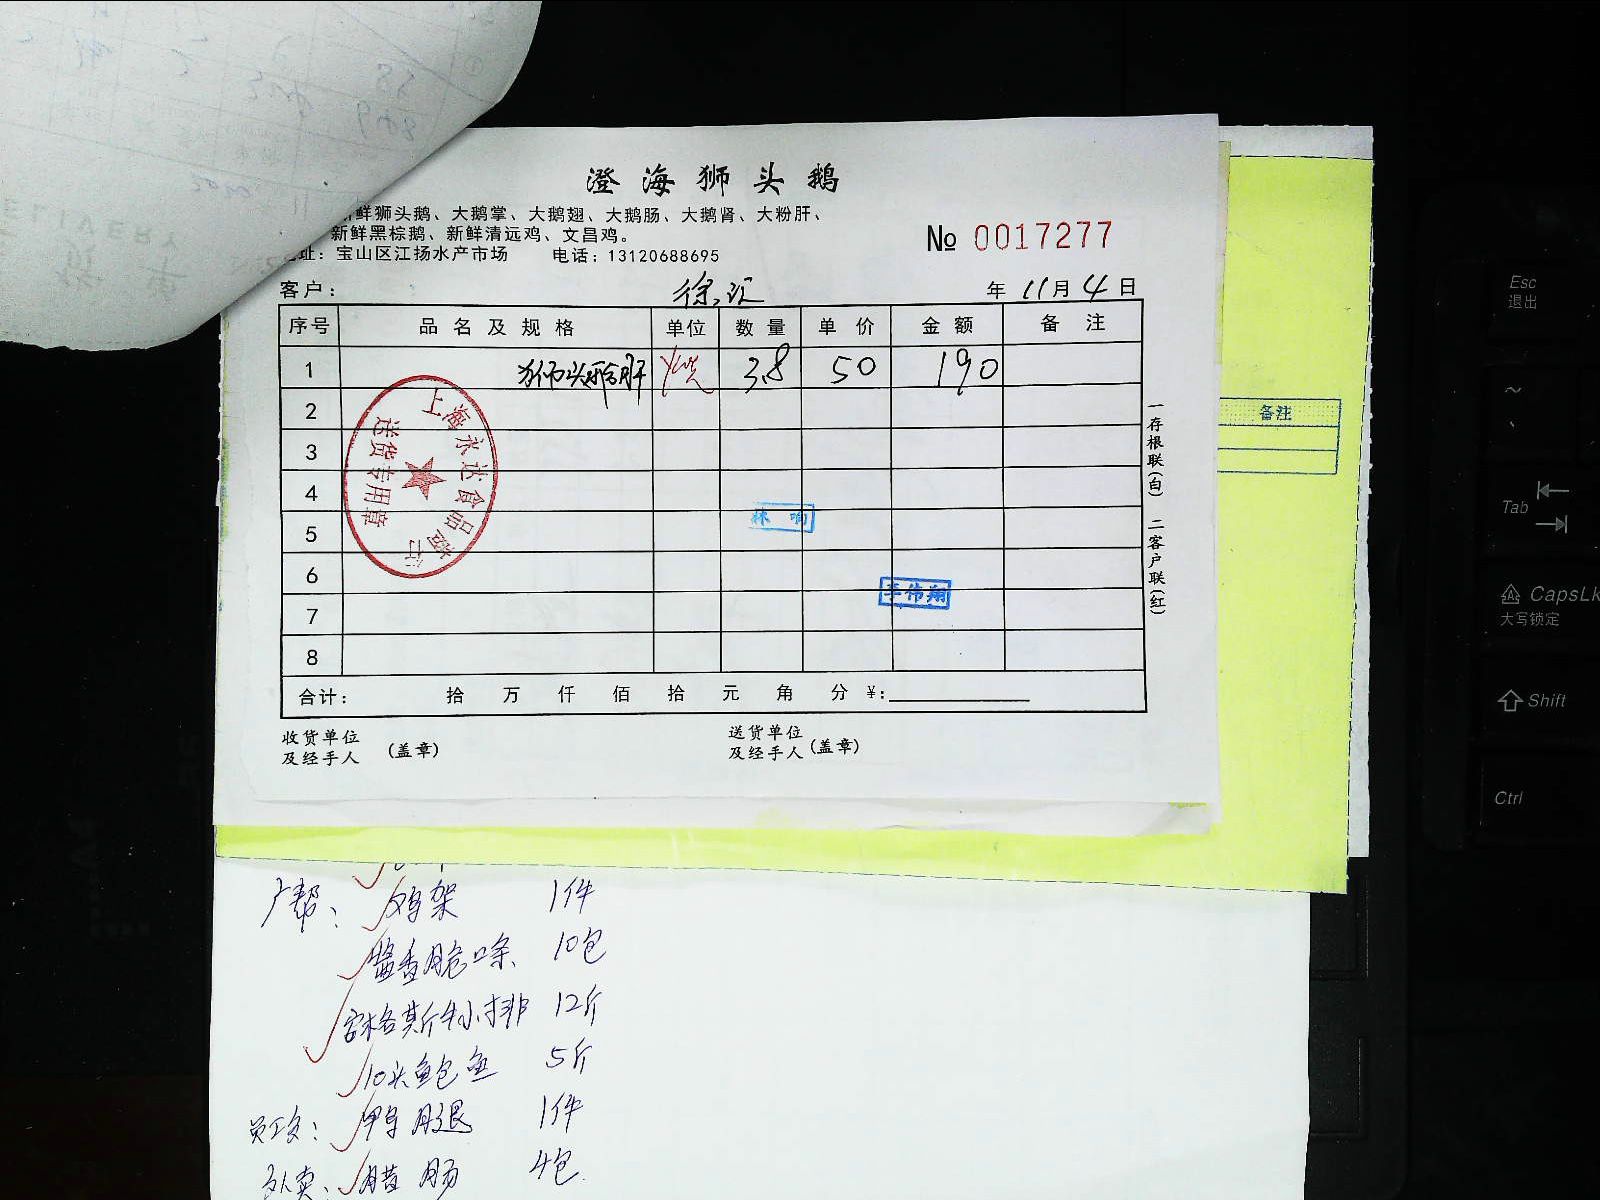 澄海狮头鹅
鲜狮头鹅、大鹅掌、大鹅翅、大鹅肠、大鹅肾、大粉肝、
新鲜黑棕鹅、新鲜清远鸡、文昌鸡。
址：宝山区江扬水产市场 电话：13120688695
№ 0017277
客户： 徐汇 年 11月 4日
序号 品名及规格 单位 数量 单价 金额 备注
1 狮头鹅肝 烧 3.8 50 190
2
3
4
5
6
7
8
上海永达食品商行
送货专用章
林响
李伟翔
合计： 拾 万 仟 佰 拾 元 角 分 ¥：
收货单位
及经手人 （盖章）
送货单位
及经手人（盖章）
一存根联（白） 二客户联（红）
备注
广帮： 鸡架 1件
酱香脆口条 10包
安格斯牛小排 12斤
10头鲍鱼 5斤
员工餐： 鸭腿 1件
外卖： 腊肠 4包
Esc
退出
~
Tab
CapsLk
大写锁定
Shift
Ctrl